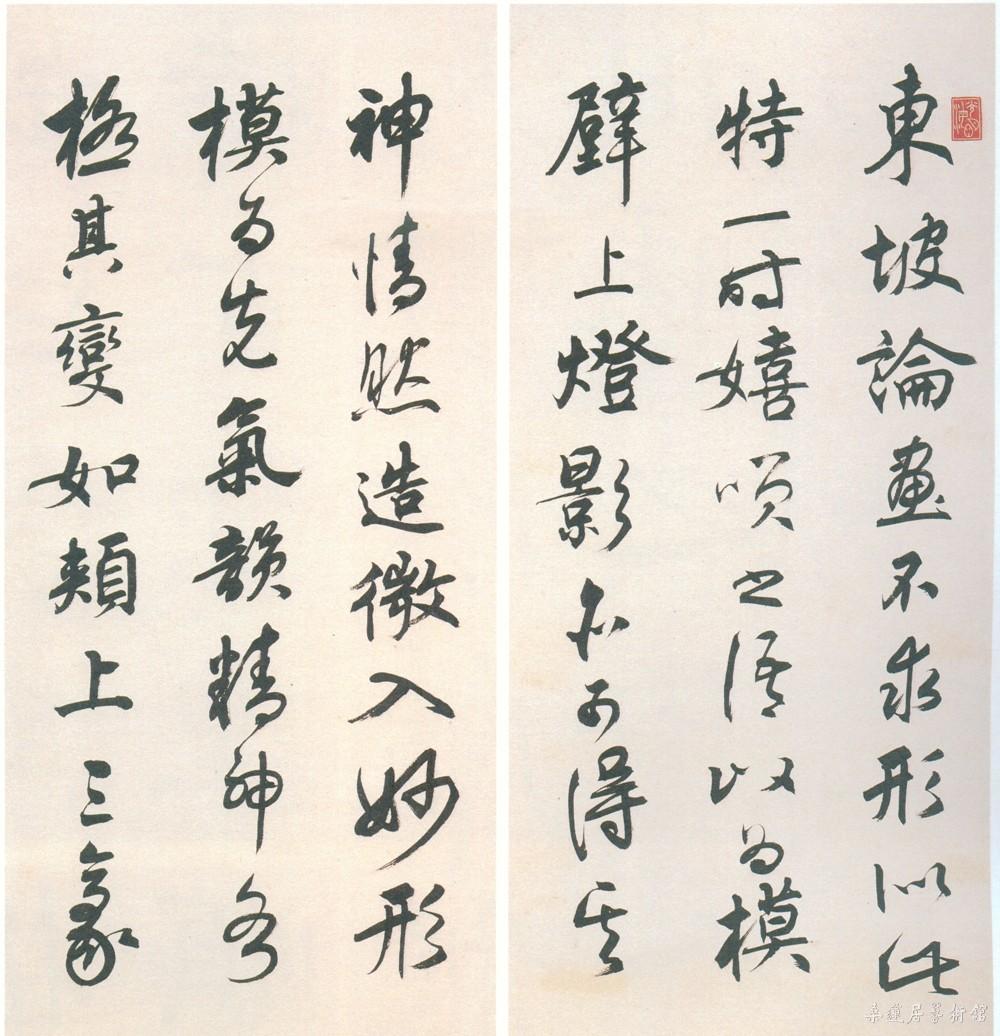 東坡論畫不求形似此
特一時嬉咲之語以為模
壁上燈影亦可得其
神情然造微入妙形
模為先氣韻精神各
極其變如頰上三毫
桑蓮居藝術館